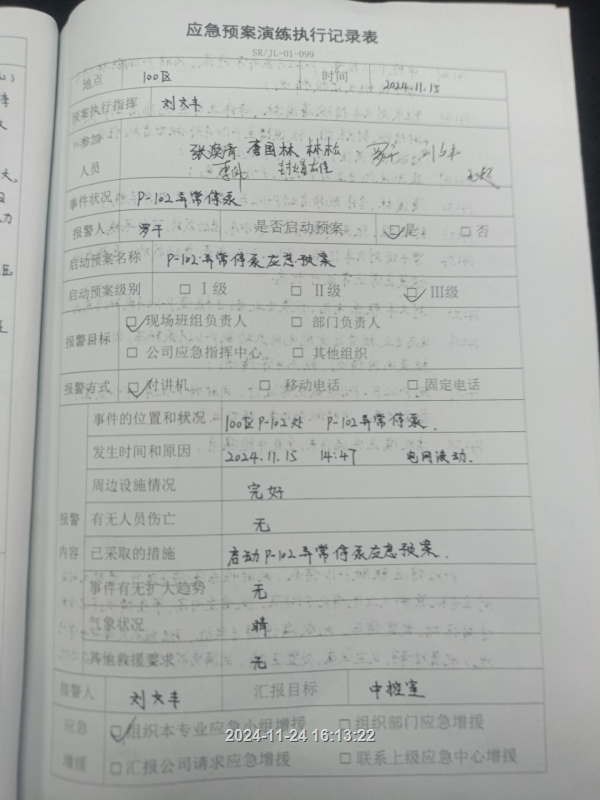 应急预案演练执行记录表
SR/JL-01-099
地点 100区 时间 2024.11.15
预案执行指挥 刘大丰
参加 唐国林 林松 罗干
人员
事件状况 P-102异常停泵
报警人 罗干 是否启动预案 ☑是 □否
启动预案名称 P-102异常停泵应急预案
启动预案级别 □Ⅰ级 □Ⅱ级 ☑Ⅲ级
报警目标 ☑现场班组负责人 □部门负责人
□公司应急指挥中心 □其他组织
报警方式 ☑对讲机 □移动电话 □固定电话
事件的位置和状况 100区P-102处 P-102异常停泵.
发生时间和原因 2024.11.15 14:47 电网波动.
周边设施情况 完好
报警 有无人员伤亡 无
内容 已采取的措施 启动P-102异常停泵应急预案.
事件有无扩大趋势 无
气象状况 晴
其他救援要求 无
报警人 刘大丰 汇报目标 中控室
应急 ☑组织本专业应急小组增援 □组织部门应急增援
2024-11-24 16:13:22
增援 □汇报公司请求应急增援 □联系上级应急中心增援